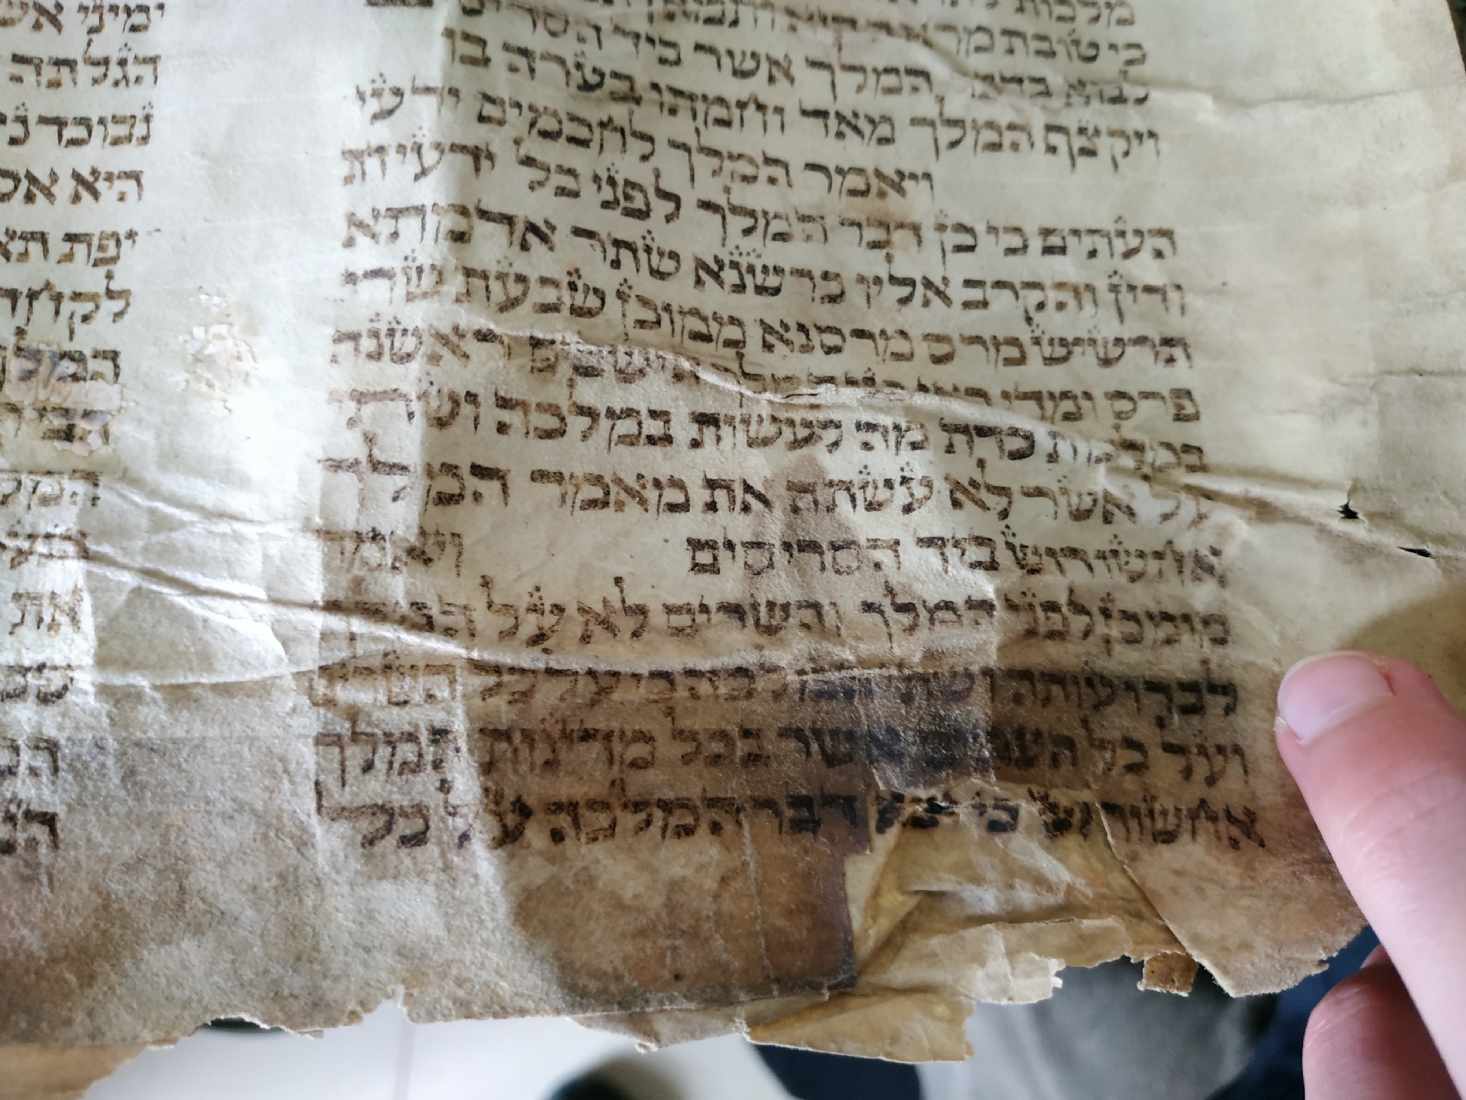 מלכות
כי טובת מראה היא ותמאן
לבוא בדבר המלך אשר ביד הסריסים
ויקצף המלך מאד וחמתו בערה בו
ויאמר המלך לחכמים ידעי
העתים כי כן דבר המלך לפני כל ידעי דת
ודין והקרב אליו כרשנא שתר אדמתא
תרשיש מרס מרסנא ממוכן שבעת שרי
פרס ומדי המלך הישבים ראשנה
במלכות כדת מה לעשות במלכה ושתי
על אשר לא עשתה את מאמר המלך
אחשורוש ביד הסריסים ויאמר
מומכן לפני המלך והשרים לא על המלך
לבדו עותה ושתי המלכה כי על כל השרים
ועל כל העמים אשר בכל מדינות המלך
אחשורוש כי יצא דבר המלכה על כל
ימיני
הגלתה
היא
יפת
לקחה
המלך
את